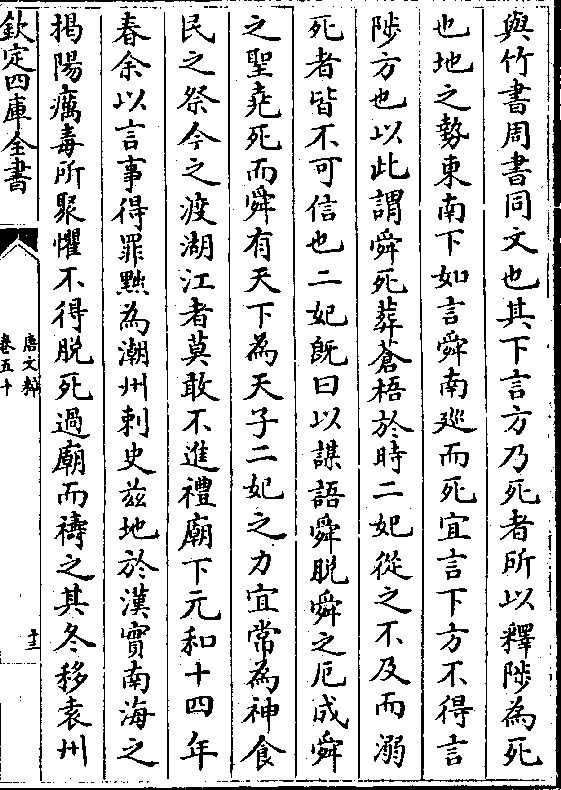 與竹書周書同文也其下言方乃死者所以釋陟為死
也地之勢東南下如言舜南廵而死宜言下方不得言
陟方也以此謂舜死葬蒼梧於時二妃從之不及而溺
死者皆不可信也二妃既曰以謀語舜脱舜之厄成舜
之聖堯死而舜有天下為天子二妃之力宜常為神食
民之祭今之渡湖江者莫敢不進禮廟下元和十四年
春余以言事得罪黜為潮州刺史兹地於漢實南海之
揭陽癘毒所聚懼不得脱死過廟而禱之其冬移袁州
欽定四庫全書
唐文粹
卷五十
十三